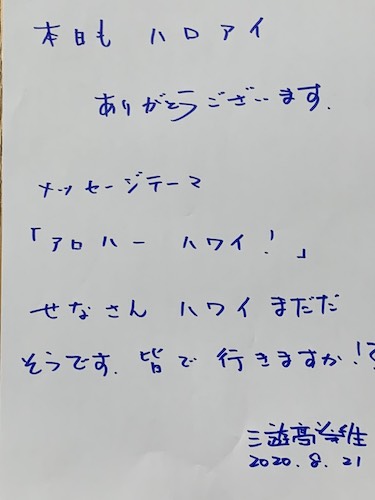 本日も ハロアイ
ありがとうございます.
メッセージテーマ
「アロハー ハワイ!」
せなさん ハワイまだだ
そうです. 皆で 行きますか!?
三遊亭
2020.8.21